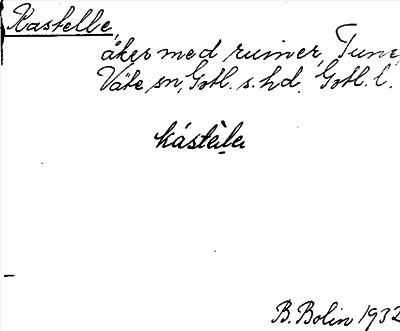 Kastelle,
åker med ruiner, Tune,
Väte sn, Gotl. s. hd, Gotl. l.
kástèlα
B. Bolin 1932